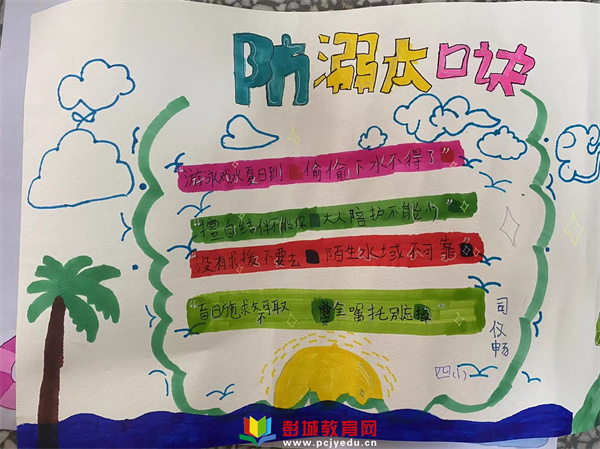 防溺水口诀
"游泳戏水夏日到 偷偷下水不得了"
"擅自结伴不能保 大人陪护不能少"
"没有救援不要去 陌生水域不可靠"
"盲目施救不可取 全嘱托别忘掉
司仪畅
四(1)
彭城教育网
www.pcjyedu.cn